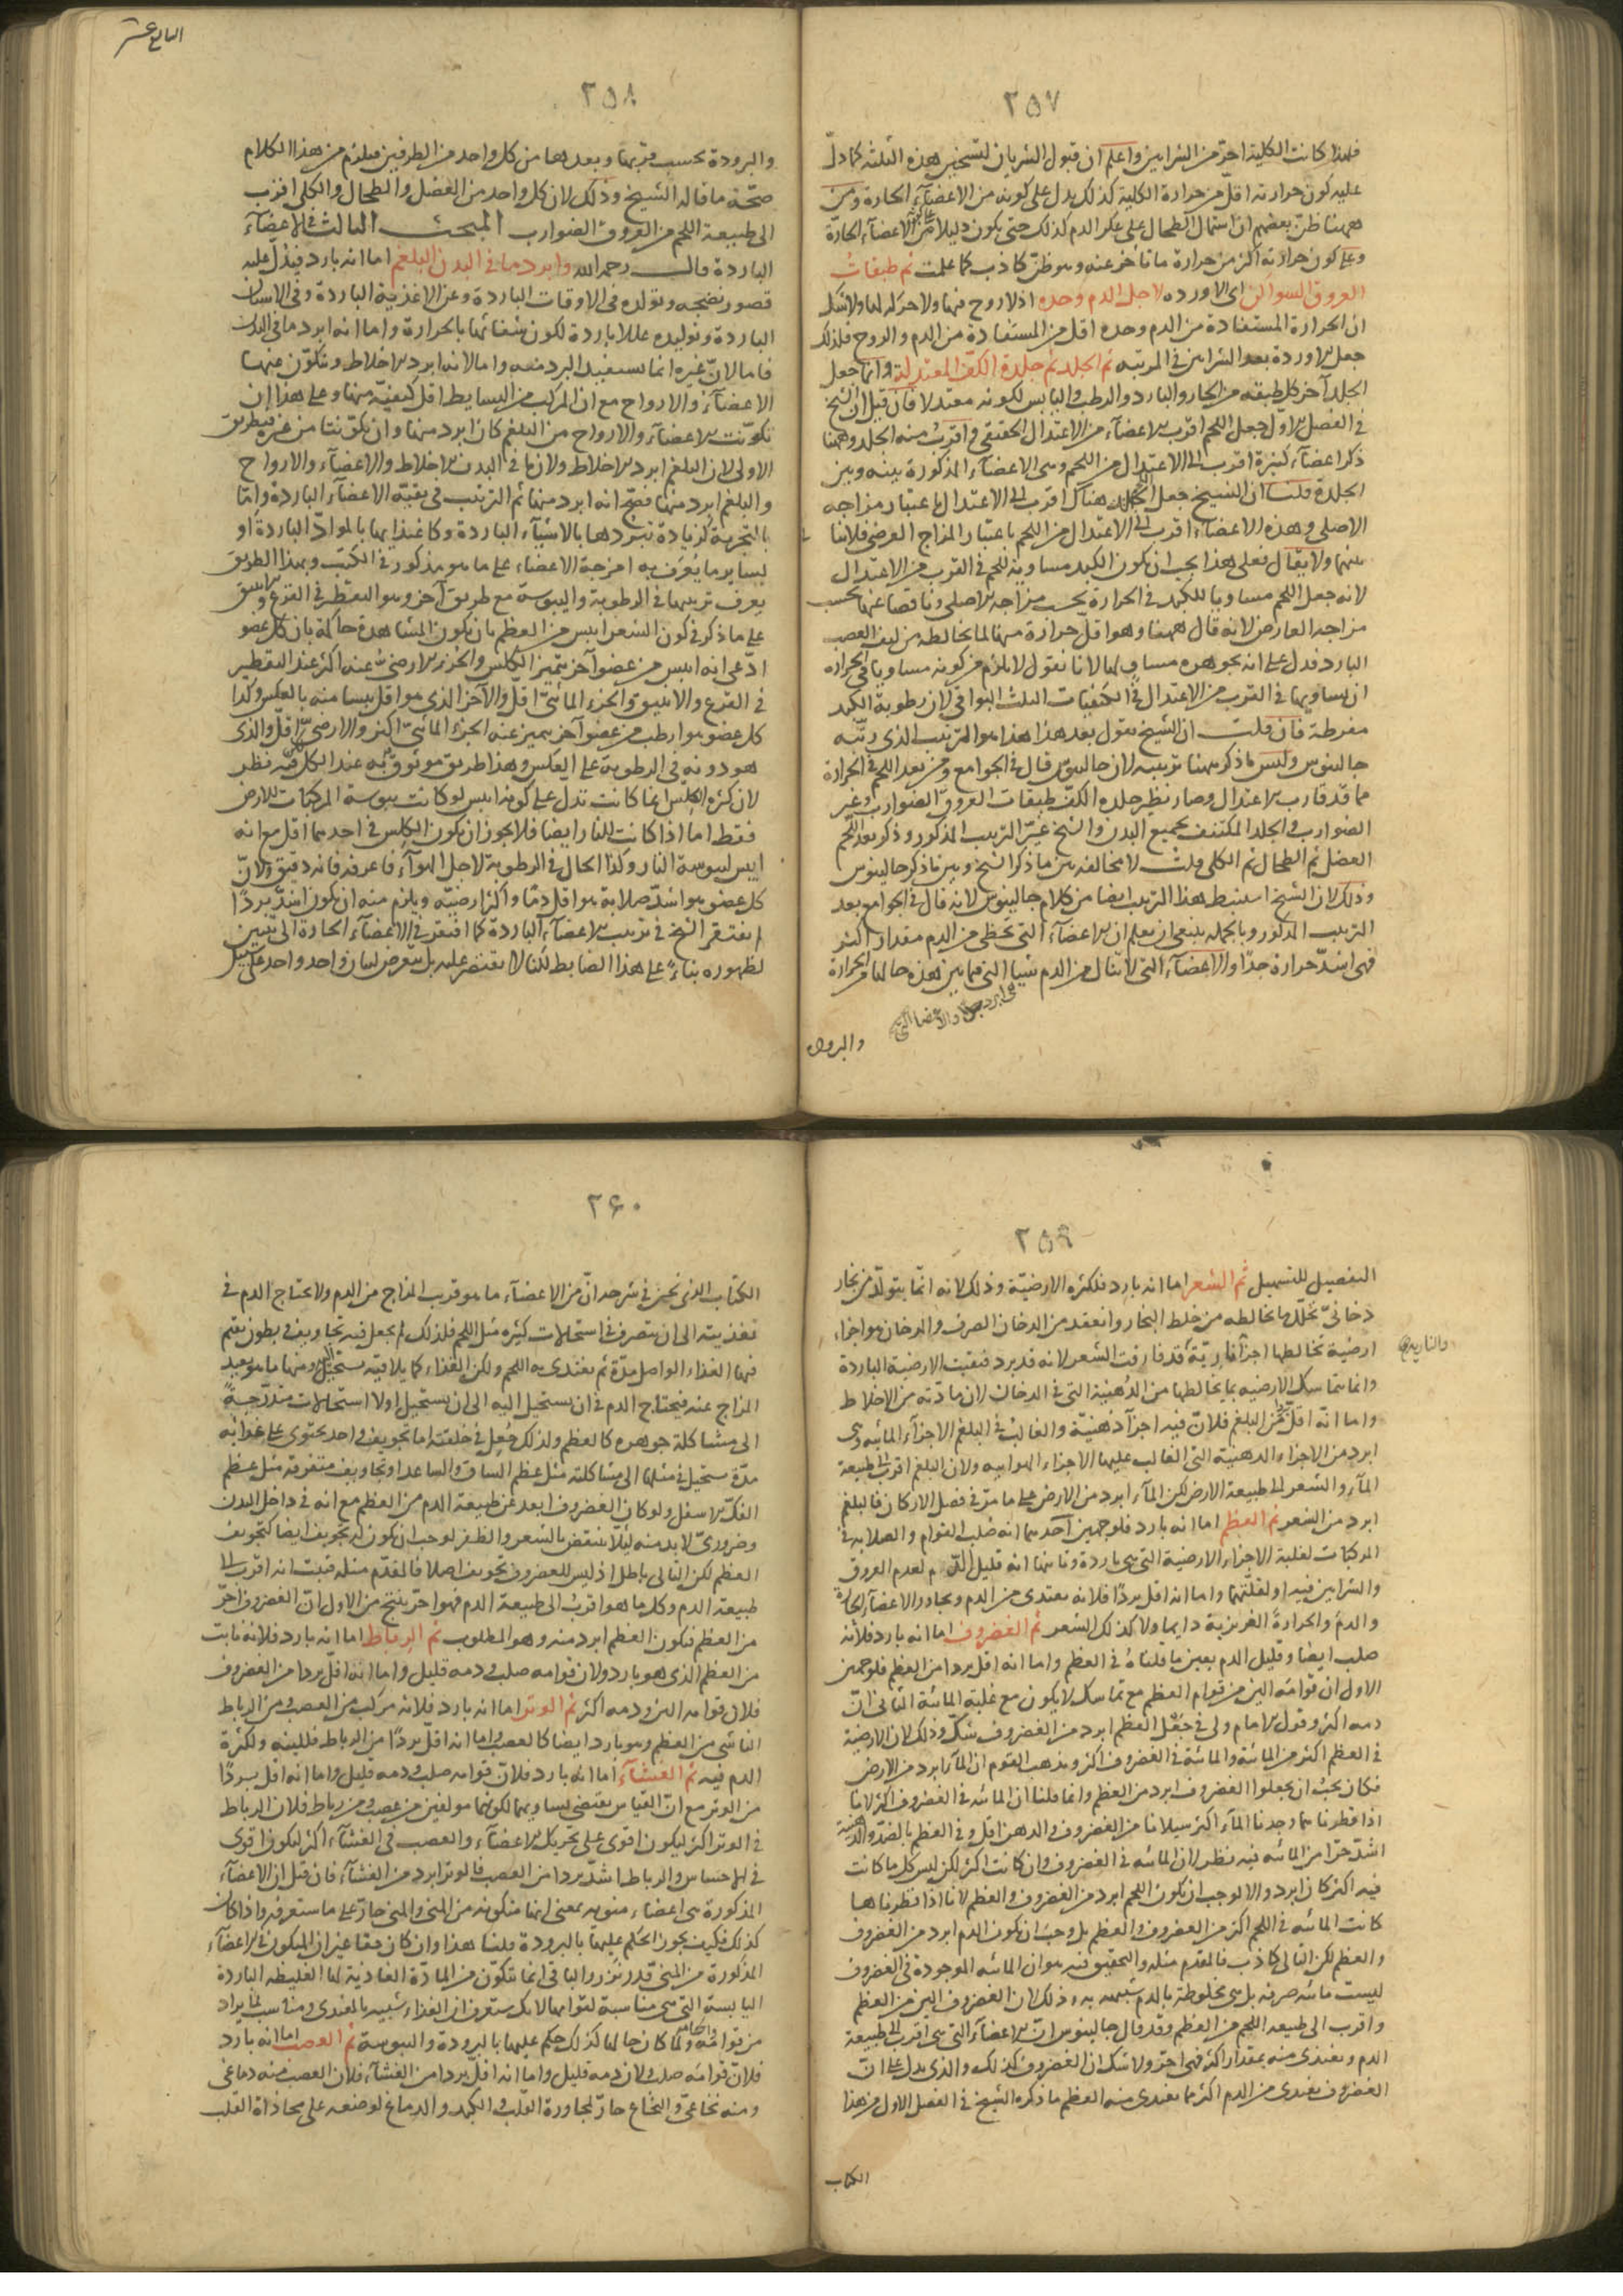 ٢٥٧
فلهذا كانت الكلية احرّ من الشرايين واعلم ان قبول الشريان لتسخين هذه الثلثة كما دلّ
عليه كون حرارته اقلّ من حرارة الكلية كذلك يدل على كونه من الاعضآء الحارة ومن
ههنا ظن بعضهم ان اشتمال الطحال على عكر الدم كذلك حتى يكون دليلا من الاعضآء الحارّة
وعلى كون حرارته اكثر من حرارة ما تأخر عنه وهو ظنّ كاذب كما علمت ثم طبقات
العروق السواكن اى الاورده لاجل الدم وحده اذ لا روح فيها ولا حركه لها ولا شك
ان الحرارة المستفادة من الدم وحده اقل من المستفادة من الدم والروح فلذلك
جعل الاوردة بعد الشرايين فى المرتبه ثم الجلد ثم جلدة الكف المعتدلة وانما جعل
الجلد آخر كل طبقه من الحار والبارد والرطب واليابس لكونه معتدلا فان قيل ان الشيخ
فى الفصل الاول جعل اللحم اقرب الاعضآء من الاعتدال الحقيقى واقرب منه الجلد وههنا
ذكر اعضآء كثيرة اقرب الى الاعتدال من اللحم وهى الاعضآء المذكورة بينه وبين
الجلدة قلنا ان الشيخ جعل الجلد هناك اقرب الى الاعتدال باعتبار مزاجه
الاصلى وهذه الاعضاء اقرب الى الاعتدال من اللحم باعتبار المزاج العرضى فلا تنا
بينهما ولا يقال فعلى هذا يجب ان يكون الكبد مساوية للحم فى القرب من الاعتدال
لانه جعل اللحم مساويا للكبد فى الحرارة بحسب مزاجه الاصلى وناقصا عنها بحسب
مزاجه العارض لانه قال ههنا وهو اقلّ حرارة منها لما يخالطه من ليف العصب
البارد فدل على انه بجوهره مساو لها لانا نقول لا يلزم من كونه مساويا فى الحرارة
ان يساويها فى القرب من الاعتدال فى الكيفيات الثلث البواقى لان رطوبة الكبد
مفرطة فان قلت ان الشيخ يقول بعد هذا هذا هو الترتيب الذى رتّبه
جالينوس وليس ما ذكر ههنا ترتيبه لان جالينوس قال فى الجوامع ومن بعد اللحم فى الحرارة
مما قد قارب الاعتدال وصار نظير جلدة الكف طبقات العروق الضوارب وغير
الضوارب والجلد المكتنف بجميع البدن والشيخ غيّر الترتيب المذكور وذكر بعد اللحم
العضل ثم الطحال ثم الكلى قلت لا مخالفة بين ما ذكر الشيخ وبين ما ذكر جالينوس
وذلك لان الشيخ استنبط هذا الترتيب ايضا من كلام جالينوس لانه قال فى الجوامع بعد
الترتيب المذكور وبالجملة ينبغى ان يعلم ان الاعضآء التى تحظى من الدم مقدارا اكثر
فهى اشدّ حرارة جدّا والاعضآء التى لا تنال من الدم شيئا التى فيما بين هذه حالها فى الحرارة
هى ابرد جدا والاعضا التى
والبرودة
السابع عشر
٢٥٨
والبرودة بحسب قربها وبعدها من كل واحد من الطرفين فيلزم من هذا الكلام
صحّة ما قاله الشيخ وذلك لان كل واحد من العضل والطحال والكلى اقرب
الى طبيعة اللحم من العروق الضوارب المبحث الثالث فى الاعضآء
الباردة قال رحمه الله وابرد ما فى البدن البلغم اما انه بارد فيدل عليه
قصور نضجه وتولده فى الاوقات الباردة وعن الاغذية الباردة وفى الاسنان
الباردة وتوليده عللا باردة لكون شفائها بالحرارة واما انه ابرد ما فى البدن
فاما لانّ غيره انما يستفيد البرد منه واما لانه ابرد الاخلاط وتتكوّن منها
الاعضآء والارواح مع ان المركب من البسايط اقل كيفيّة منها وعلى هذا ان
تكوّنت الاعضآء والارواح من البلغم كان ابرد منها وان تكوّنتا من غيره فبطريق
الاولى لان البلغم ابرد الاخلاط ولان ما فى البدن الاخلاط والاعضآء والارواح
والبلغم ابرد منها فصحّ انه ابرد منها ثم الترتيب فى بقيّة الاعضآء الباردة وامّا
بالتجربة لزيادة تبرّدها بالاشيآء الباردة وكاغتذايها بالموادّ الباردة او
لسايرما يعرف به امزجة الاعضاء على ما هو مذكور فى الكتب وبهذا الطريق
يعرف ترتيبها فى الرطوبة واليبوسة مع طريق آخر وهو التقطير فى القرع والانبيق
على ما ذكر فى كون الشعر ايبس من العظم بان يكون المشاهدة حاكمة بان كل عضو
ادّعى انه ايبس من عضو آخر يتميز الكلس والجزء الارضى عنه اكثر عند التقطير
فى القرع والانبيق والجزء المائىّ اقلّ والآخر الذى هو اقل يبسا منه بالعكس وكذا
كل عضو هو ارطب من عضو آخر يتميز عنه الجزء المائىّ اكثر والارضىّ اقلّ والذى
هو دونه فى الرطوبة على العكس وهذا طريق موثوق به عند الكل وفيه نظر
لان كثرة الكلس انما كانت تدل على كونه ايبس لو كانت يبوسة المركبات للارض
فقط اما اذا كانت للنار ايضا فلا يجوز ان يكون الكلس فى احدهما اقل مع انه
ايبس ليبوسة النار وكذا الحال فى الرطوبة لاجل الهوآء فاعرفه فانه دقيق ولانّ
كل عضو هو اشدّ صلابة هو اقل دمّا واكثر ارضيّه ويلزم منه ان يكون اشدّ بردًا
لم يفتقر الشيخ فى ترتيب الاعضآء الباردة كما افتقر فى الاعضآء الحارة الى تبيين
لظهوره بناءً على هذا الضابط لكنا لا نقتصر عليه بل نتعرض لبيان واحد واحد على سبيل
٢٥٩
التفصيل للتسهيل ثم الشعر اما انه بارد فلكثرة الارضيّة وذلك لانه انّما يتولّد من بخار
دخانىّ تحلّل ما يخالطه من خلط البخار وانعقد من الدخان الصرف والدخان هو اجزاء
ارضية تخالطها اجزآء ناريّة قد فارقت الشعر لانه قد برد فبقيت الارضية الباردة
والنارية
وانما تتماسك الارضيه بما يخالطها من الدهنية التى فى الدخان لان مادّته من الاخلاط
واما انّه اقلّ بردا من البلغم فلانّ فيه اجزآء دهنيّة والغالب فى البلغم الاجزآء المائيه وهى
ابرد من الاجزاء الدهنية التى الغالب عليها الاجزاء الهوائيه ولان البلغم اقرب الى طبيعة
المآء والشعر الى طبيعة الارض لكن المآء ابرد من الارض على ما مرّ فى فصل الاركان فالبلغم
ابرد من الشعر ثم العظم اما انه بارد فلوجهين احدهما انه صلب القوام والصلابه فى
المركبات لغلبة الاجزاء الارضية التى هى باردة وثانيهما انه قليل الدّم لعدم العروق
والشرايين فيه او لقلّتهما واما انه اقل بردًا فلانه يغتدى من الدم ويجاور الاعضآء الحارة
والدم والحرارة الغريزية دايما ولا كذلك الشعر ثم الغضروف اما انه بارد فلانه
صلب ايضا وقليل الدم بعين ما قلناهُ فى العظم واما انه اقل بردا من العظم فلوجهين
الاول ان قوامَه الين من قوام العظم مع تماسك لا يكون مع غلبة المائية الثانى انّ
دمه اكثر وقول الامام ولى فى جَعْل العظم ابرد من الغضروف شكّ وذلك لان الارضية
فى العظم اكثر من المائية والمائية فى الغضروف اكثر ومذهب القوم ان المآء ابرد من الارض
فكان يجب ان يجعلوا الغضروف ابرد من العظم وانما قلنا ان المائيه فى الغضروف اكثر لانا
اذا قطرناهما وجدنا المآء اكثر سيلانا من الغضروف والدهن اقل وفى العظم بالضدّ والدهنية
اشدّ حرّا من المائيه فيه نظر لان المائيه فى الغضروف وان كانت اكثر لكن ليس كل ما كانت
فيه اكثر كان ابرد والا لوجب ان يكون اللحم ابرد من الغضروف والعظم لانا اذا قطرناها
كانت المائيه فى اللحم اكثر من الغضروف والعظم بل وجب ان يكون الدم ابرد من الغضروف
والعظم لكن التالى كاذب فالمقدم مثله والتحقيق فيه هو ان المائيه الموجودة فى الغضروف
ليست مائيه صرفه بل هى مخلوطة بالدم شبيهه به وذلك لان الغضروف الين من العظم
واقرب الى طبيعه اللحم من العظم وقد قال جالينوس انّ الاعضآء التى هى اقرب الى طبيعة
الدم وتغتدى منه بمقدار اكثر فهى احرّ ولا شك ان الغضروف كذلك والذى يدل على انّ
الغضروف يغتدى من الدم اكثر مما يغتدى منه العظم ما ذكره الشيخ فى الفصل الاول من هذا
الكتاب
٢۶٠
الكتاب الذى نحن فى شرحه انّ من الاعضآء ما هو قريب المزاج من الدم ولا يحتاج الدم فى
تغذيته الى ان يتصرف فى استحالات كثيرة مثل اللحم فلذلك لم يجعل فيه تجاويف وبطون يقيم
فيها الغذاء الواصل مدّة ثم يغتدى به اللحم ولكن الغذاء كما يلاقيه يستحيل اليه ومنها ما هو بعيد
المزاج عنه فيحتاج الدم فى ان يستحيل اليه الى ان يستحيل اولا استحالات متدرّجة
الى مشاكلة جوهره كالعظم ولذلك جُعِل فى خلقته اما تجويف واحد يحتوى على غذائه
مدّة يستحيل فى مثلها الى مشاكلته مثل عظم الساق والساعد او تجاويف متفرقه مثل عظم
الفكّ الاسفل ولو كان الغضروف ابعد عن طبيعة الدم من العظم مع انه فى داخل البدن
وضرورىّ لا بد منه ليلا ينتقض بالشعر والظفر لوجب ان يكون له تجويف ايضا كتجويف
العظم لكن التالى باطل اذ ليس للغضروف تجويف اصلا فالمقدّم مثله فثبت انه اقرب الى
طبيعة الدم وكل ما هو اقرب الى طبيعة الدم فهو احرّ ينتج من الاول انّ الغضروف احرّ
من العظم فيكون العظم ابرد منه وهو المطلوب ثم الرباط اما انه بارد فلانه نابت
من العظم الذى هو بارد ولان قوامه صلب ودمه قليل واما انه اقل بردا من الغضروف
فلان قوامه الين ودمه اكثر ثم الوتر اما انه بارد فلانه مركب من العصب ومن الرباط
الناشى من العظم وهو بارد ايضا كالعصب واما انه اقلّ بردًا من الرباط فللينه ولكثرة
الدم فيه ثم الغشآء اما انه بارد فلانّ قوامه صلب ودمه قليل واما انه اقل بردًا
من الوتر مع انّ القياس يقتضى تساويهما لكونهما مولفين من عصب ومن رباط فلان الرباط
فى الوتر اكثر ليكون اقوى على تحريك الاعضآء والعصب فى الغشآء اكثر ليكون اقوى
فى الاحساس والرباط اشدّ بردا من العصب فالوتر ابرد من الغشآء فان قيل ان الاعضآء
المذكورة هى اعضاء منويه بمعنى انها متكونه من المنى والمنى حارّ على ما ستعرفه واذا كان
كذلك فكيف يجوز الحكم عليها بالبرودة قلنا هذا وان كان حقا غير ان المتكون فى الاعضآء
المذكورة من المنىّ قدر نزر والباقى انما يتكوّن من المادّة الغاذية لها الغليظه الباردة
اليابسة التى هى مناسبة لقوامها لانك ستعرف ان الغذاء شبيه بالمغتدى ومناسب لما يراد
من قوامه ولما كان حالها كذلك حكم عليها بالبرودة واليبوسة ثم العصب اما انه بارد
فلانّ قوامَه صلب ولان دمه قليل واما انه اقل بردا من الغشآء فلان العصب منه دماغى
ومنه نخاعىّ والنخاع حارّ لمجاورة القلب والكبد والدماغ لوضعه على محاذاة القلب